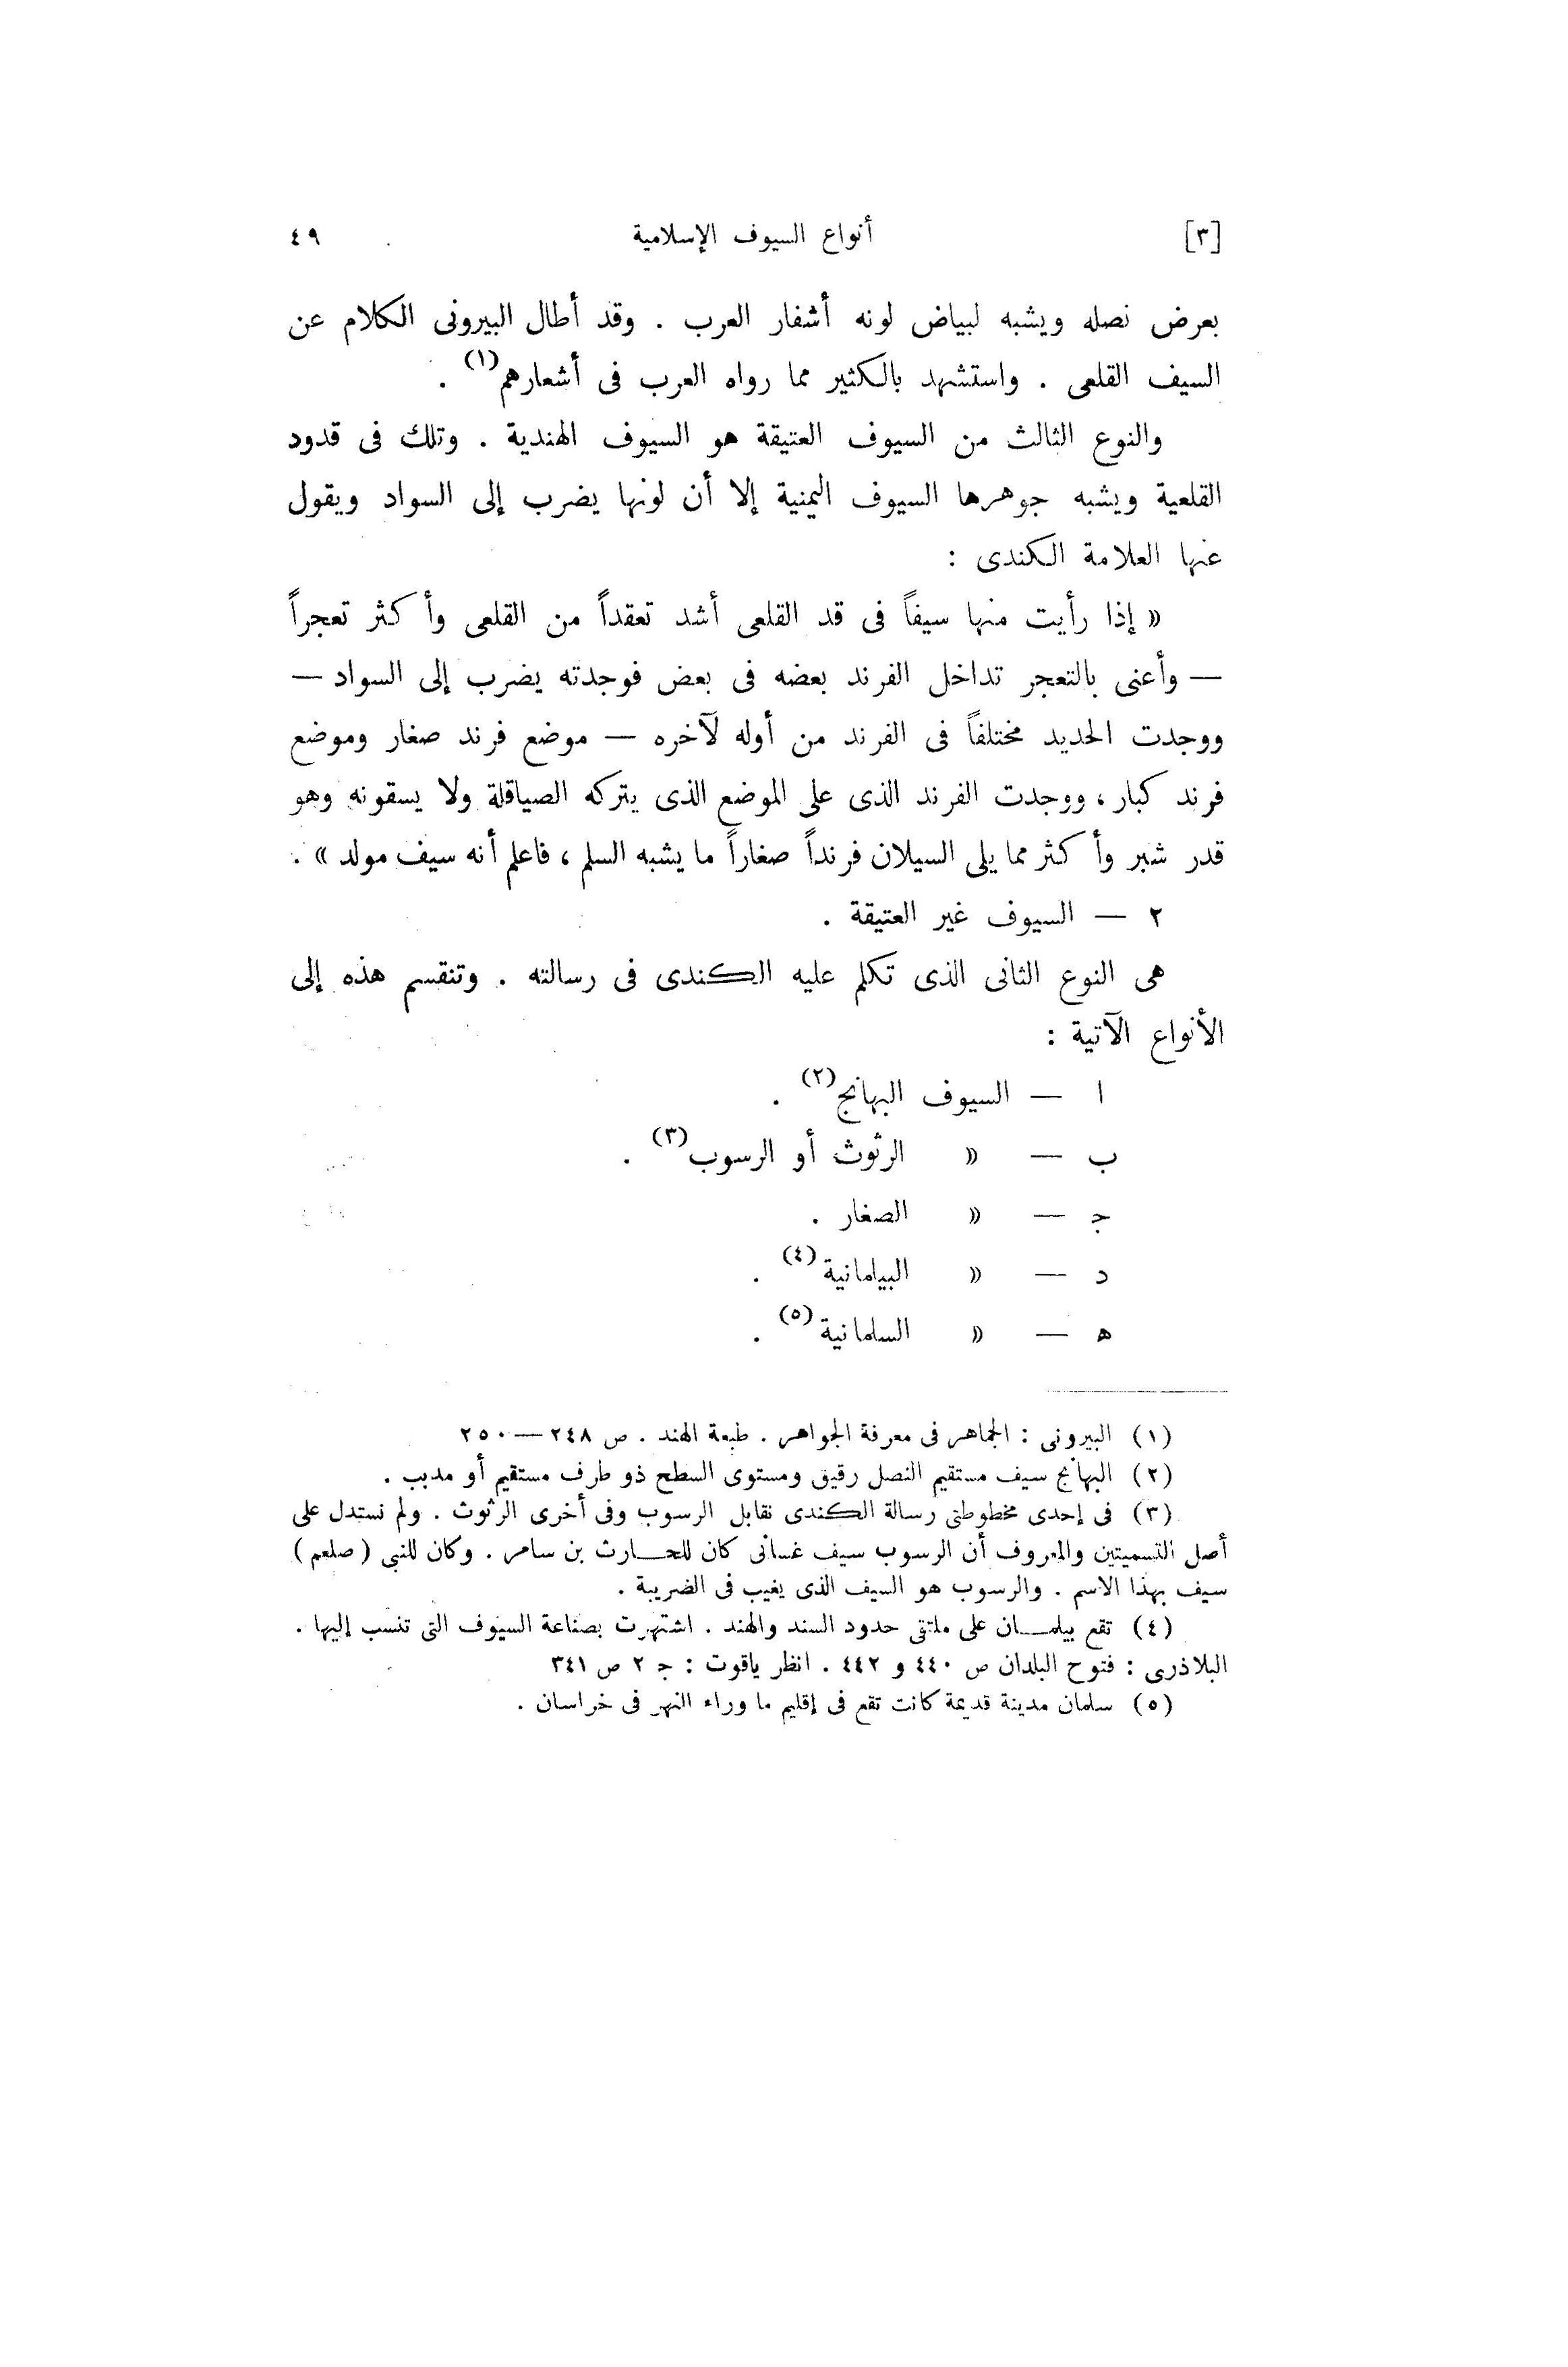 [٣] أنواع السيوف الإسلامية ٤٩
بعرض نصله ويشبه لبياض لونه أشفار العرب . وقد أطال البيرونى الكلام عن
السيف القلعى . واستشهد بالكثير مما رواه العرب فى أشعارهم(١) .
والنوع الثالث من السيوف العتيقة هو السيوف الهندية . وتلك فى قدود
القلعية ويشبه جوهرها السيوف اليمنية إلا أن لونها يضرب إلى السواد ويقول
عنها العلامة الكندى :
« إذا رأيت منها سيفاً فى قد القلعى أشد تعقداً من القلعى وأكثر تعجراً
— وأعنى بالتعجر تداخل الفرند بعضه فى بعض فوجدته يضرب إلى السواد —
ووجدت الحديد مختلفاً فى الفرند من أوله لآخره — موضع فرند صغار وموضع
فرند كبار ، ووجدت الفرند الذى على الموضع الذى يتركه الصياقلة ولا يسقونه وهو
قدر شبر وأكثر مما يلى السيلان فرنداً صغاراً ما يشبه السلم ، فاعلم أنه سيف مولد » .
٢ — السيوف غير العتيقة .
هى النوع الثانى الذى تكلم عليه الكندى فى رسالته . وتنقسم هذه إلى
الأنواع الآتية :
ا — السيوف البهانج(٢) .
ب — « الرثوث أو الرسوب(٣) .
ج — « الصغار .
د — « البيلمانية(٤) .
ه — « السلمانية(٥) .
(١) البيرونى : الجماهر فى معرفة الجواهر . طبعة الهند . ص ٢٤٨ — ٢٥٠
(٢) البهانج سيف مستقيم النصل رقيق ومستوى السطح ذو طرف مستقيم أو مدبب .
(٣) فى إحدى مخطوطتى رسالة الكندى نقابل الرسوب وفى أخرى الرثوث . ولم نستدل على
أصل التسميتين والمعروف أن الرسوب سيف غسانى كان للحارث بن سامر . وكان للنبى ( صلعم )
سيف بهذا الاسم . والرسوب هو السيف الذى يغيب فى الضريبة .
(٤) تقع بيلمان على ملتقى حدود السند والهند . اشتهرت بصناعة السيوف التى تنسب إليها .
البلاذرى : فتوح البلدان ص ٤٤٠ و ٤٤٢ . انظر ياقوت : ج ٢ ص ٣٤١
(٥) سلمان مدينة قديمة كانت تقع فى إقليم ما وراء النهر فى خراسان .